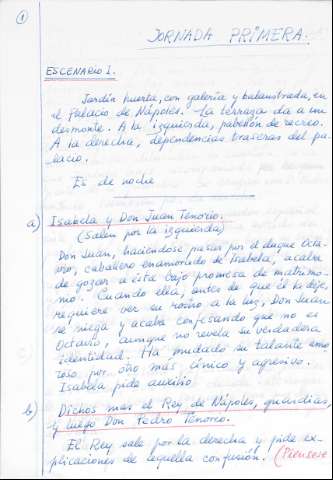 ①
JORNADA PRIMERA.
ESCENARIO I.
Jardín huerta, con galería y balaustrada, en
el Palacio de Nápoles. La terraza da a un
desmonte. A la izquierda, pabellón de recreo.
A la derecha, dependencias traseras del pa-
lacio.
Es de noche
a) Isabela y Don Juan Tenorio.
(Salen por la izquierda)
Don Juan, haciéndose pasar por el duque Octa-
vio, caballero enamorado de Isabela, acaba
de gozar a ésta bajo promesa de matrimo-
nio. Cuando ella, antes de que él la deje,
requiere ver su rostro a la luz, Don Juan
se niega y acaba confesando que no es
Octavio, aunque no revela su verdadera
identidad. Ha mudado su talante amo-
roso por otro más cínico y agresivo.
Isabela pide auxilio.
b) Dichos mas el Rey de Nápoles, guardias,
y luego Don Pedro Tenorio.
El Rey sale por la derecha y pide ex-
plicaciones de aquella confusión. (Piénsese